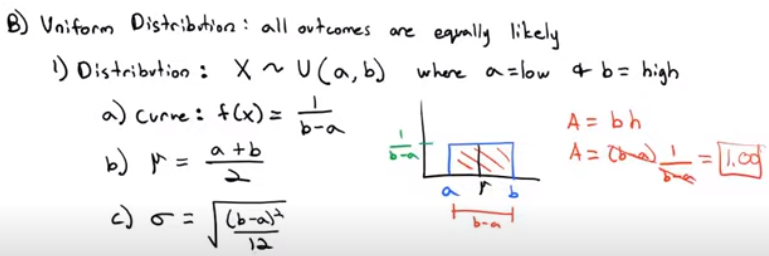 B) Uniform Distribution: all outcomes are equally likely
1) Distribution: X ~ U(a,b) where a=low & b= high
a) Curve: f(x) = 1/(b-a)
b) μ = (a+b)/2
c) σ = √((b-a)²/12)
1/(b-a)
a μ b
b-a
A = bh
A = (b-a) 1/(b-a) = 1.00